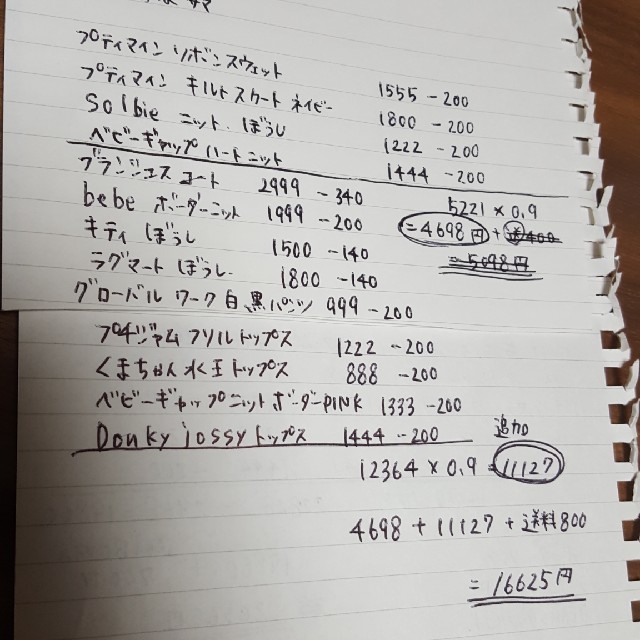 プティマイン リボンスウェット 1555 - 200
プティマイン キルトスカート ネイビー 1800 - 200
Solbie ニット.ぼうし 1222 - 200
ベビーギャップ ハートニット 1444 - 200
ブランシェス コート 2999 - 340
5221 × 0.9
bebe ボーダーニット 1999 - 200
= 4698円 + 送400
キティ ぼうし 1500 - 140
= 5098円
ラグマート ぼうし. 1800 - 140
グローバル ワーク 白黒パンツ 999 - 200
プチジャム フリルトップス 1222 - 200
くまちゃん 水玉トップス 888 - 200
ベビーギャップニットボーダーPINK 1333 - 200
Donky jossy トップス 1444 - 200
追加
12364 × 0.9 = 11127
4698 + 11127 + 送料800
= 16625円